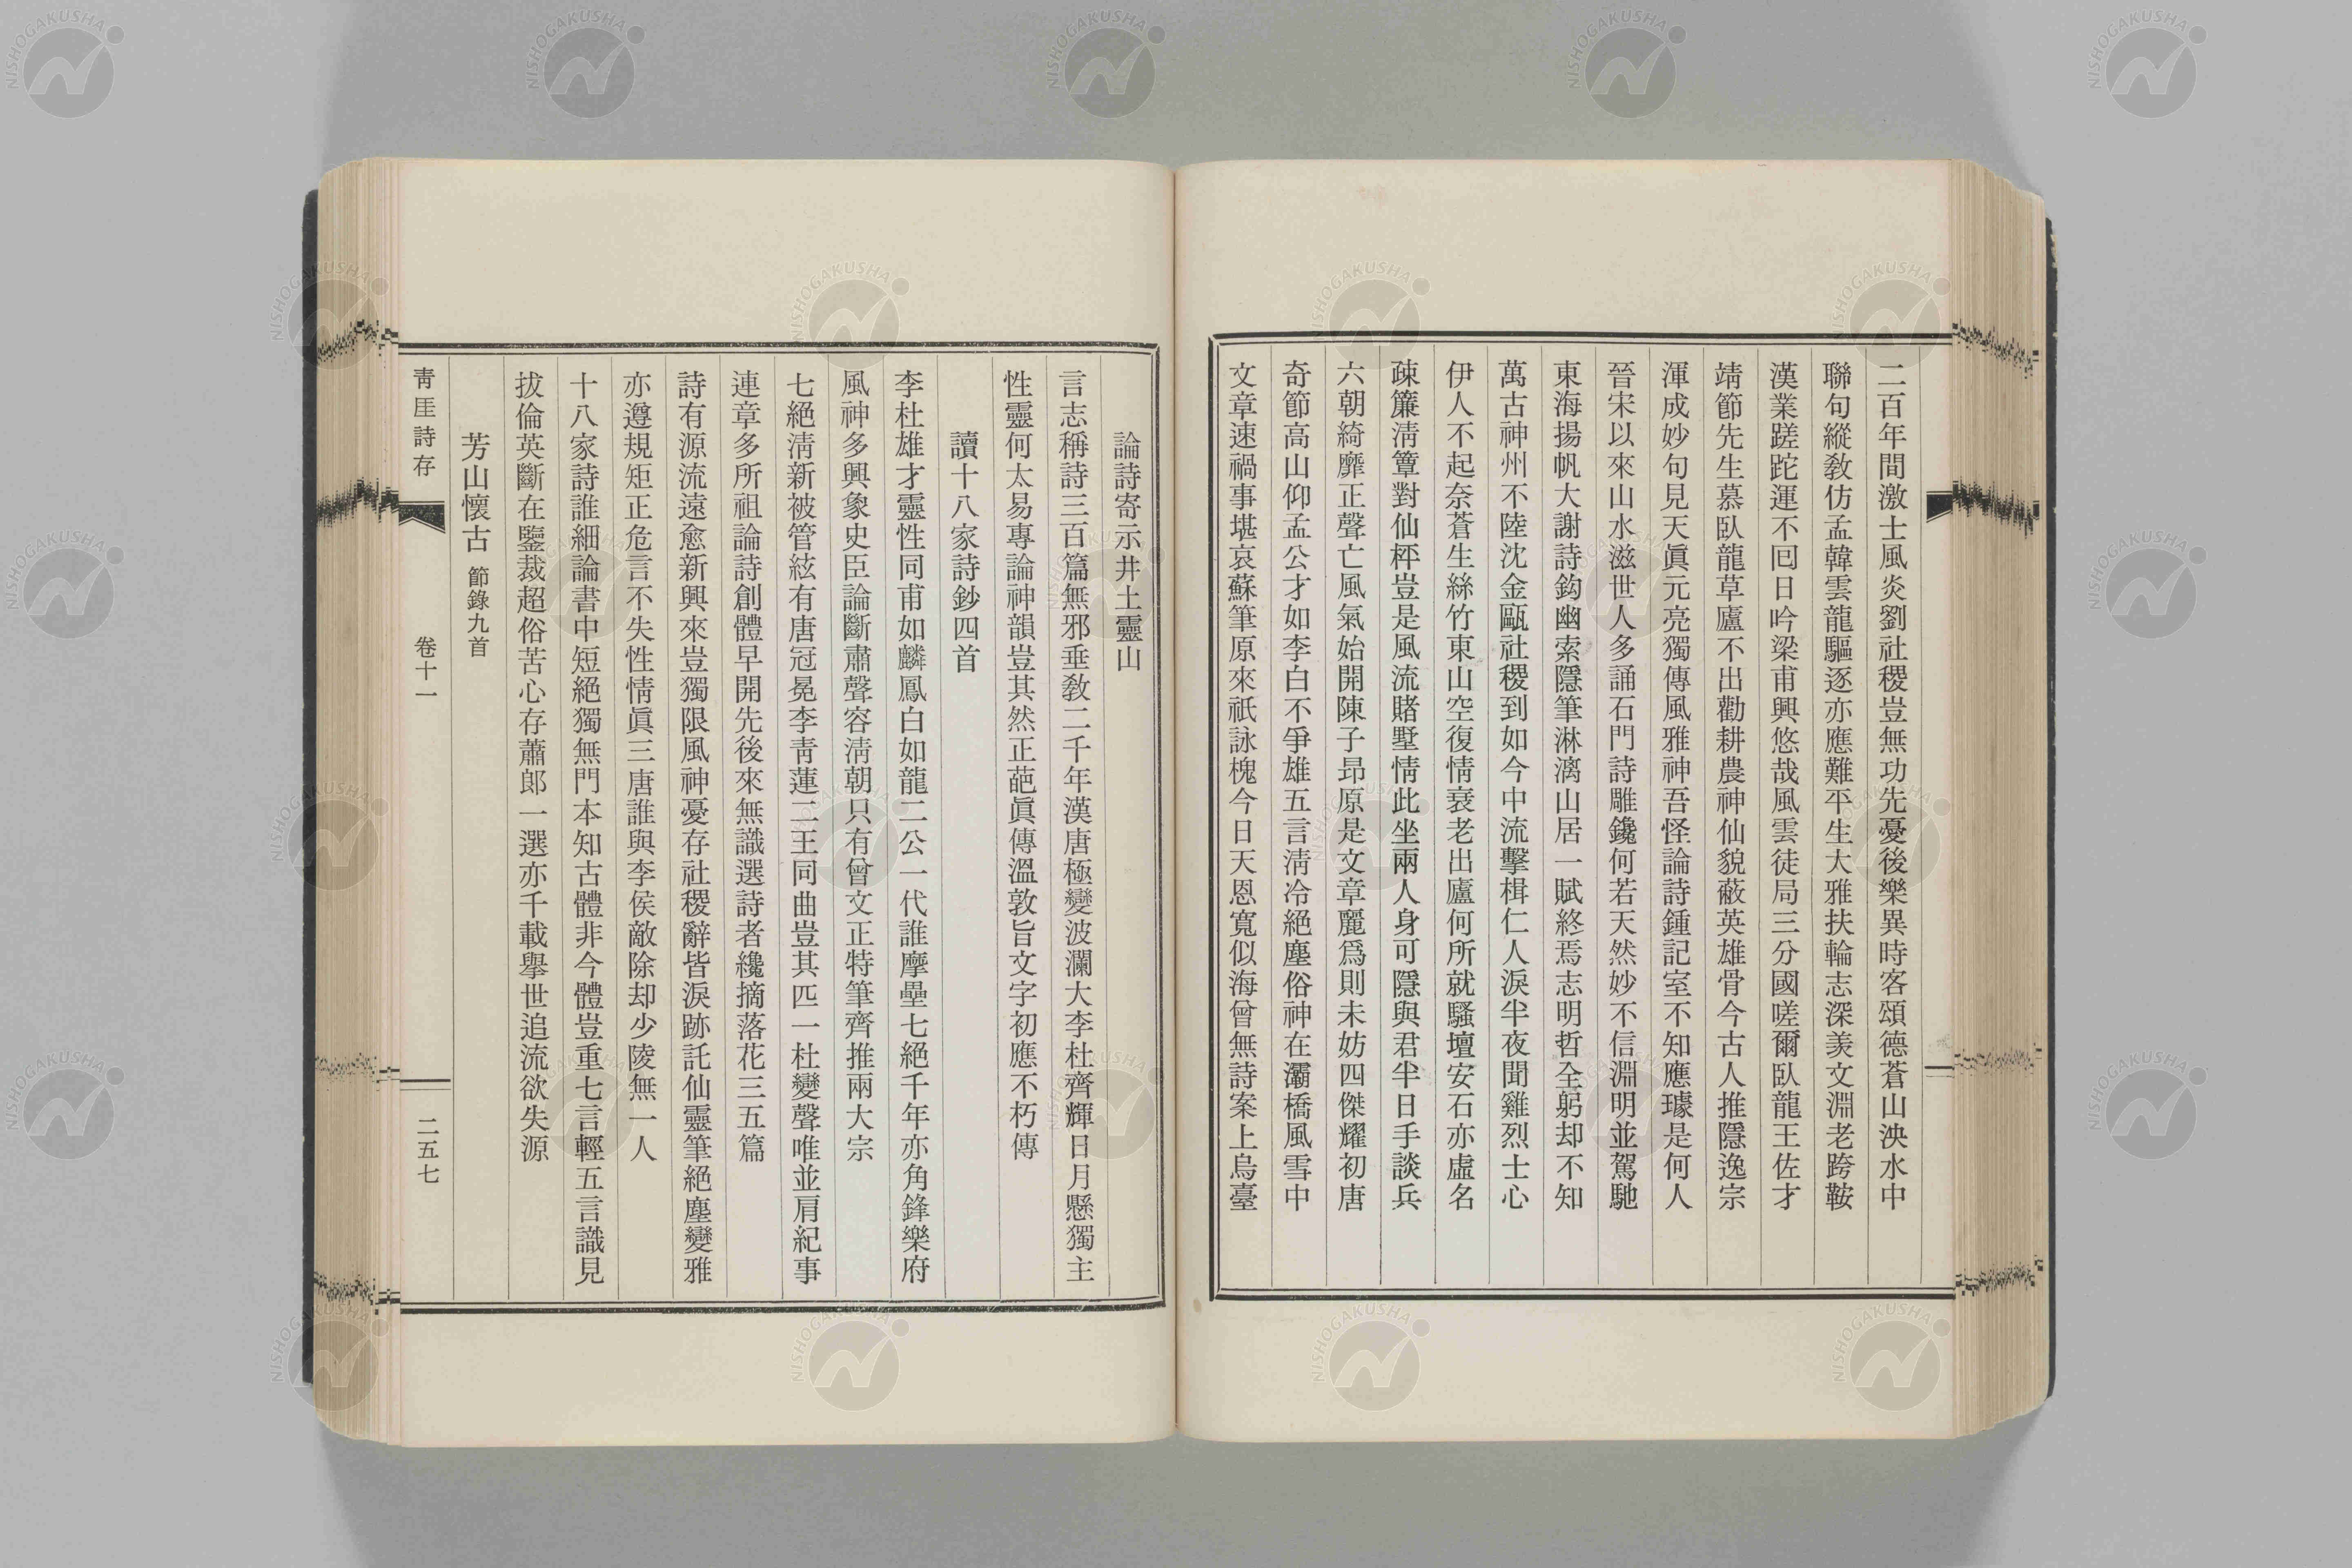 二百年間激士風炎劉社稷豈無功先憂後樂異時客頌德蒼山泱水中
聯句縱敎仿孟韓雲龍驅逐亦應難平生大雅扶輪志深羡文淵老跨鞍
漢業蹉跎運不囘日吟梁甫興悠哉風雲徒局三分國嗟爾臥龍王佐才
靖節先生慕臥龍草廬不出勸耕農神仙貌蔽英雄骨今古人推隱逸宗
渾成妙句見天眞元亮獨傳風雅神吾怪論詩鍾記室不知應璩是何人
晉宋以來山水滋世人多誦石門詩雕鑱何若天然妙不信淵明並駕馳
東海揚帆大謝詩鉤幽索隱筆淋漓山居一賦終焉志明哲全躬却不知
萬古神州不陸沈金甌社稷到如今中流擊楫仁人淚半夜聞雞烈士心
伊人不起奈蒼生絲竹東山空復情衰老出廬何所就騷壇安石亦虛名
疎簾淸簟對仙枰豈是風流賭墅情此坐兩人身可隱與君半日手談兵
六朝綺靡正聲亡風氣始開陳子昂原是文章麗爲則未妨四傑耀初唐
奇節高山仰孟公才如李白不爭雄五言淸冷絕塵俗神在灞橋風雪中
文章速禍事堪哀蘇筆原來祇詠槐今日天恩寬似海曾無詩案上烏臺
論詩寄示井土靈山
言志稱詩三百篇無邪垂敎二千年漢唐極變波瀾大李杜齊輝日月懸獨主
性靈何太易專論神韻豈其然正葩眞傳溫敦旨文字初應不朽傳
讀十八家詩鈔四首
李杜雄才靈性同甫如麟鳳白如龍二公一代誰摩壘七絕千年亦角鋒樂府
風神多興象史臣論斷肅聲容淸朝只有曾文正特筆齊推兩大宗
七絕淸新被管絃有唐冠冕李靑蓮二王同曲豈其匹一杜變聲唯並肩紀事
連章多所祖論詩創體早開先後來無識選詩者纔摘落花三五篇
詩有源流遠愈新興來豈獨限風神憂存社稷辭皆淚跡託仙靈筆絕塵變雅
亦遵規矩正危言不失性情眞三唐誰與李侯敵除却少陵無一人
十八家詩誰細論書中短絕獨無門本知古體非今體豈重七言輕五言識見
拔倫英斷在鑒裁超俗苦心存蕭郞一選亦千載擧世追流欲失源
芳山懷古 節錄九首
靑厓詩存 卷十一 二五七
NISHOGAKUSHA